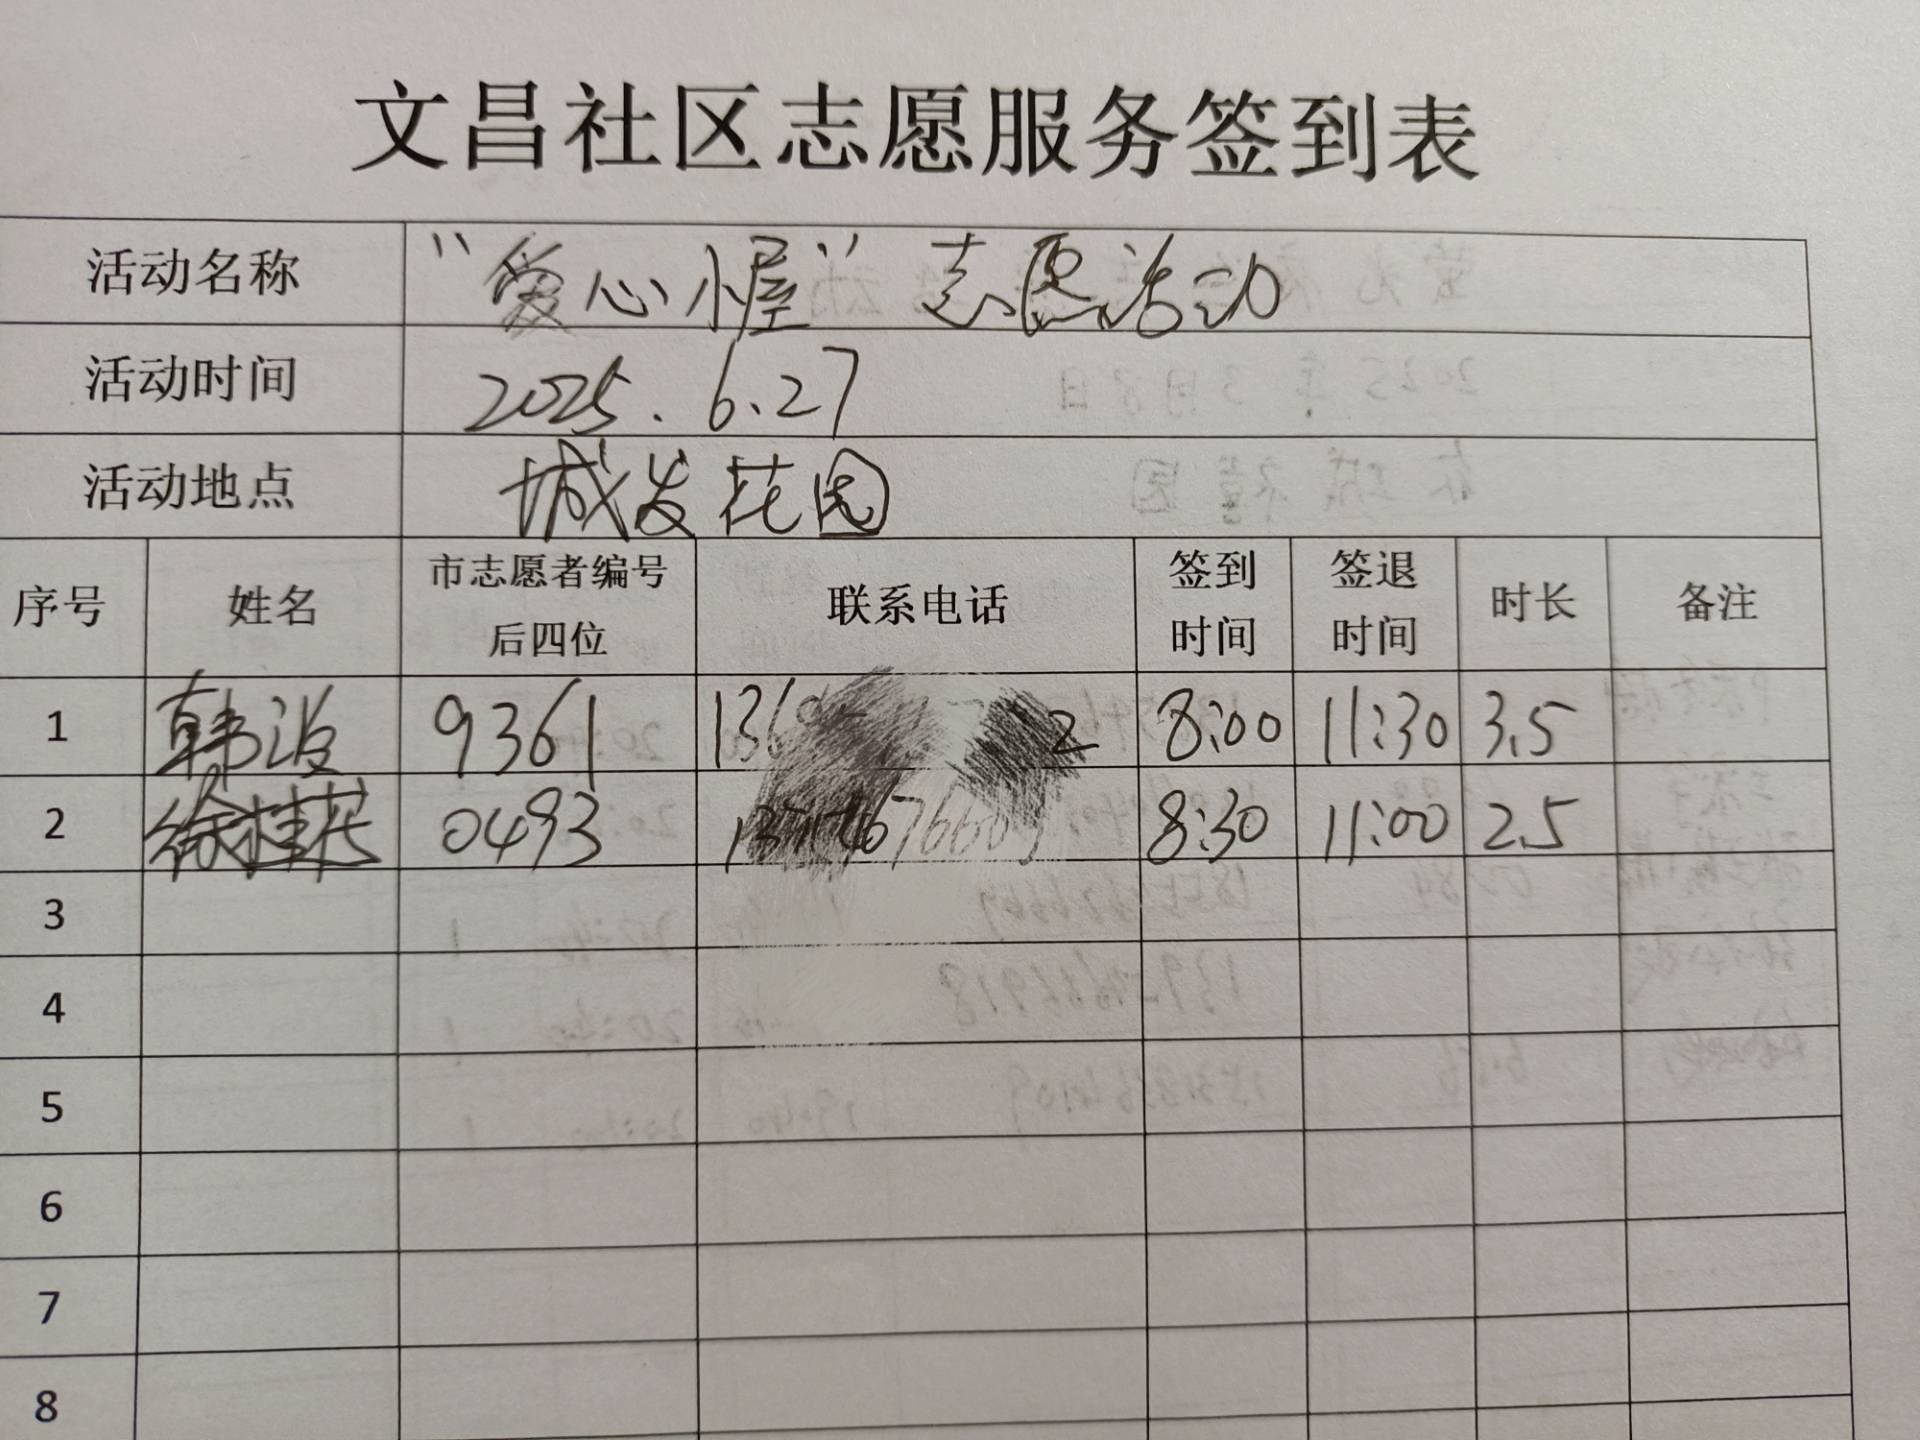 文昌社区志愿服务签到表
活动名称 "爱心小屋"志愿活动
活动时间 2025.6.27
活动地点 城发花园
序号 姓名 市志愿者编号后四位 联系电话 签到时间 签退时间 时长 备注
1 韩波 9361 8:00 11:30 3.5
2 徐桂花 0493 8:30 11:00 2.5
3
4
5
6
7
8